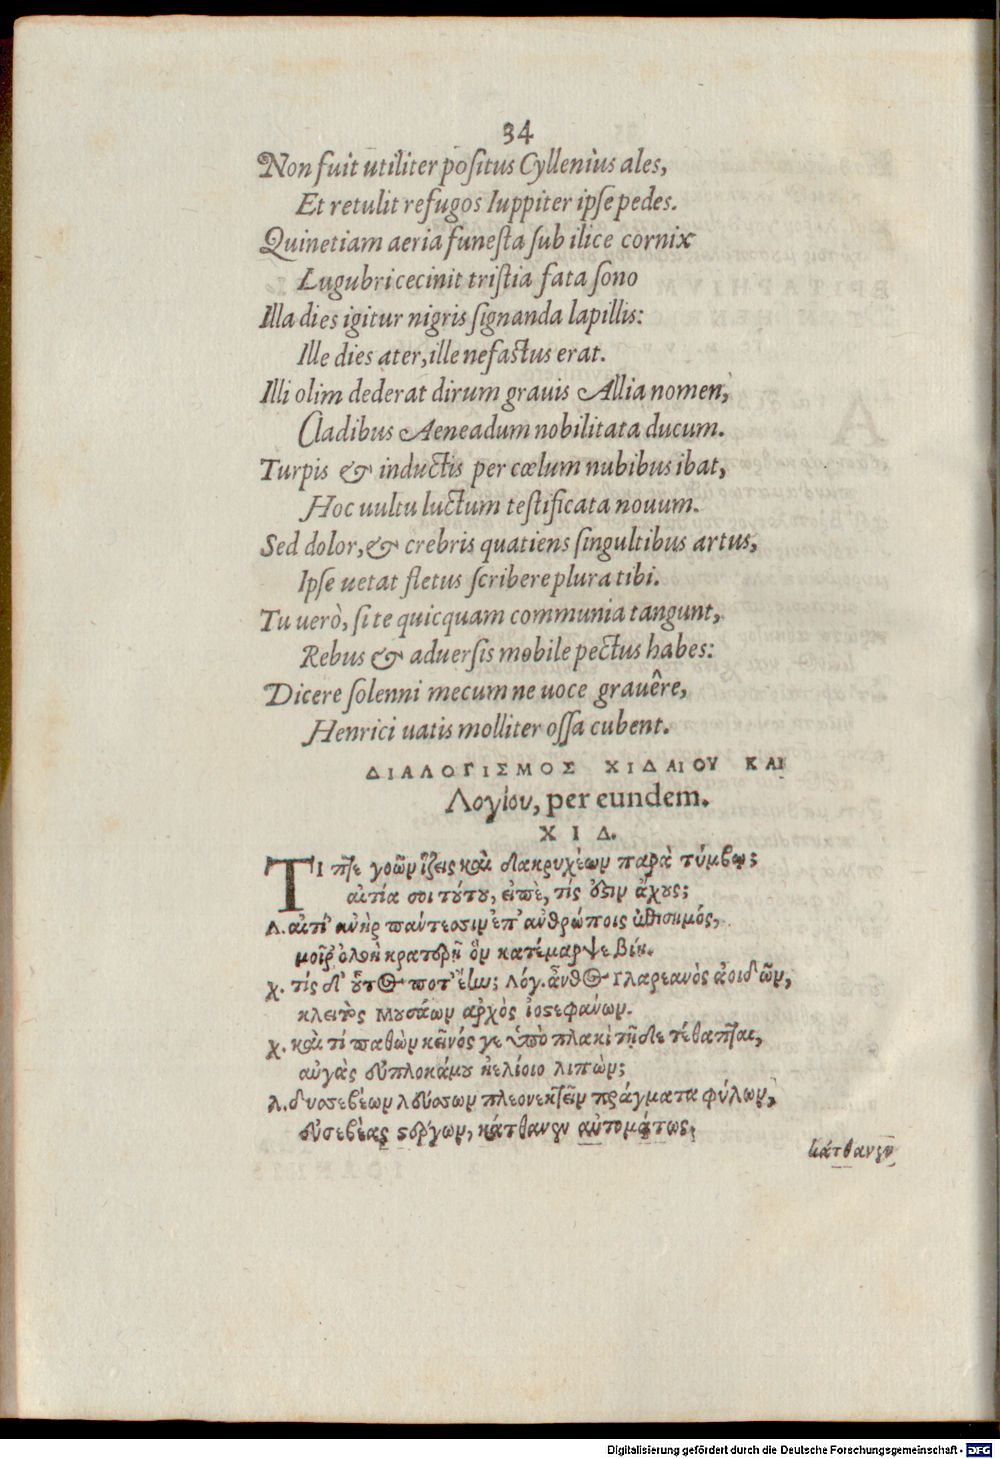 34
Non fuit utiliter positus Cyllenius ales,
Et retulit refugos Iuppiter ipse pedes.
Quinetiam aeria funesta sub ilice cornix
Lugubri cecinit tristia fata sono
Illa dies igitur nigris signanda lapillis:
Ille dies ater, ille nefastus erat.
Illi olim dederat dirum grauis Allia nomen,
Cladibus Aeneadum nobilitata ducum.
Turpis & inductis per cœlum nubibus ibat,
Hoc uultu luctum testificata nouum.
Sed dolor, & crebris quatiens singultibus artus,
Ipse uetat fletus scribere plura tibi.
Tu uerò, si te quicquam communia tangunt,
Rebus & aduersis mobile pectus habes:
Dicere solenni mecum ne uoce grauêre,
Henrici uatis molliter ossa cubent.
ΔΙΑΛΟΓΙΣΜΟΣ ΧΙΔΑΙΟΥ ΚΑΙ
Λογίου, per eundem.
ΧΙΔ.
ΤΙ πῆε γοῶν ἵζεις καὶ δακρυχέων παρὰ τύμβῳ;
αἰτία σοι τούτου, εἰπὲ, τίς ὀξὺν ἄχους;
Λ. ἀνὴρ πάντεσσιν ἐπ' ἀνθρώποις
μοῖρ' ὀλοὴ κρατερὴ ὃν κατέμαρψε βίῃ.
χ. τίς δ' οὗτος ποτ' ἔην; Λόγ. ἄνθος Γλαρεανὸς ἀοιδῶν,
κλειτὸς Μουσάων ἀρχὸς ἰοστεφάνων.
χ. καὶ τί παθὼν κεῖνός γε ὑπὸ πλακὶ τῇδε τέθαπται,
αὐγὰς εὐπλοκάμου ἠελίοιο λιπών;
λ. δυσσεβέων λεύσσων πλεονεκτεῖν πράγματα φύλων,
εὐσεβέας στέργων, κάτθανεν αὐτομάτως.
κάτθανεν
Digitalisierung gefördert durch die Deutsche Forschungsgemeinschaft - DFG